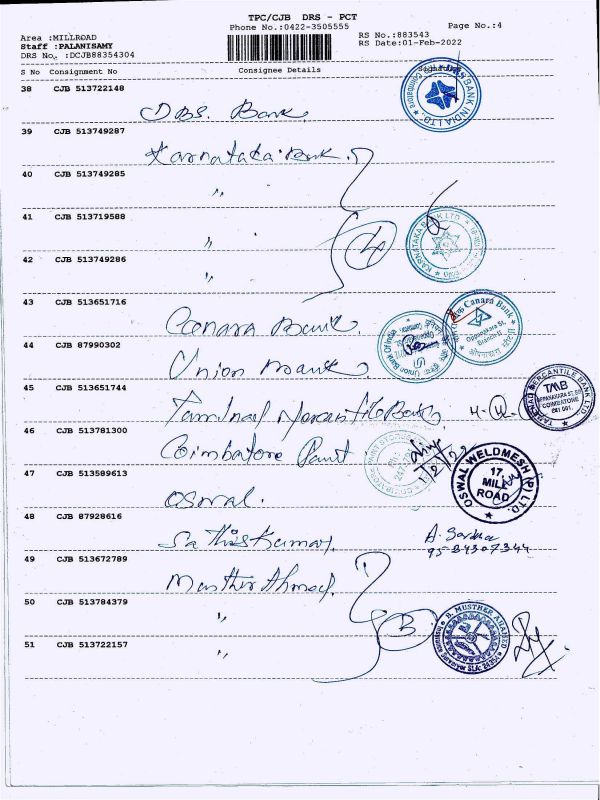 TPC/CJB DRS - PCT
Phone No.:0422-3505555
Page No.:4
Area :MILLROAD
Staff :PALANISAMY
DRS No. :DCJB88354304
RS No.:883543
RS Date:01-Feb-2022
S No Consignment No Consignee Details
38 CJB 513722148
DBS. Bank
39 CJB 513749287
Karnataka Bank
40 CJB 513749285
"
41 CJB 513719588
"
4
KARNATAKA BANK LTD
42 CJB 513749286
"
43 CJB 513651716
Canara Bank
Canara Bank
Oppanakara St.
44 CJB 87990302
Union Bank
Union Bank Of India
45 CJB 513651744
Tamilnad Mercantile Bank
TAMILNAD MERCANTILE BANK LTD
TMB
OPPANAKARA ST.
COIMBATORE
641 001.
46 CJB 513781300
Coimbatore Paint
1/2/22
47 CJB 513589613
Oswal.
OSWAL WELDMESH (P) LTD.
17,
MILL
ROAD
48 CJB 87928616
Sathiskumar.
49 CJB 513672789
Musthir Ahmad
50 CJB 513784379
"
3
B. MUSTHER AHAMED
51 CJB 513722157
"